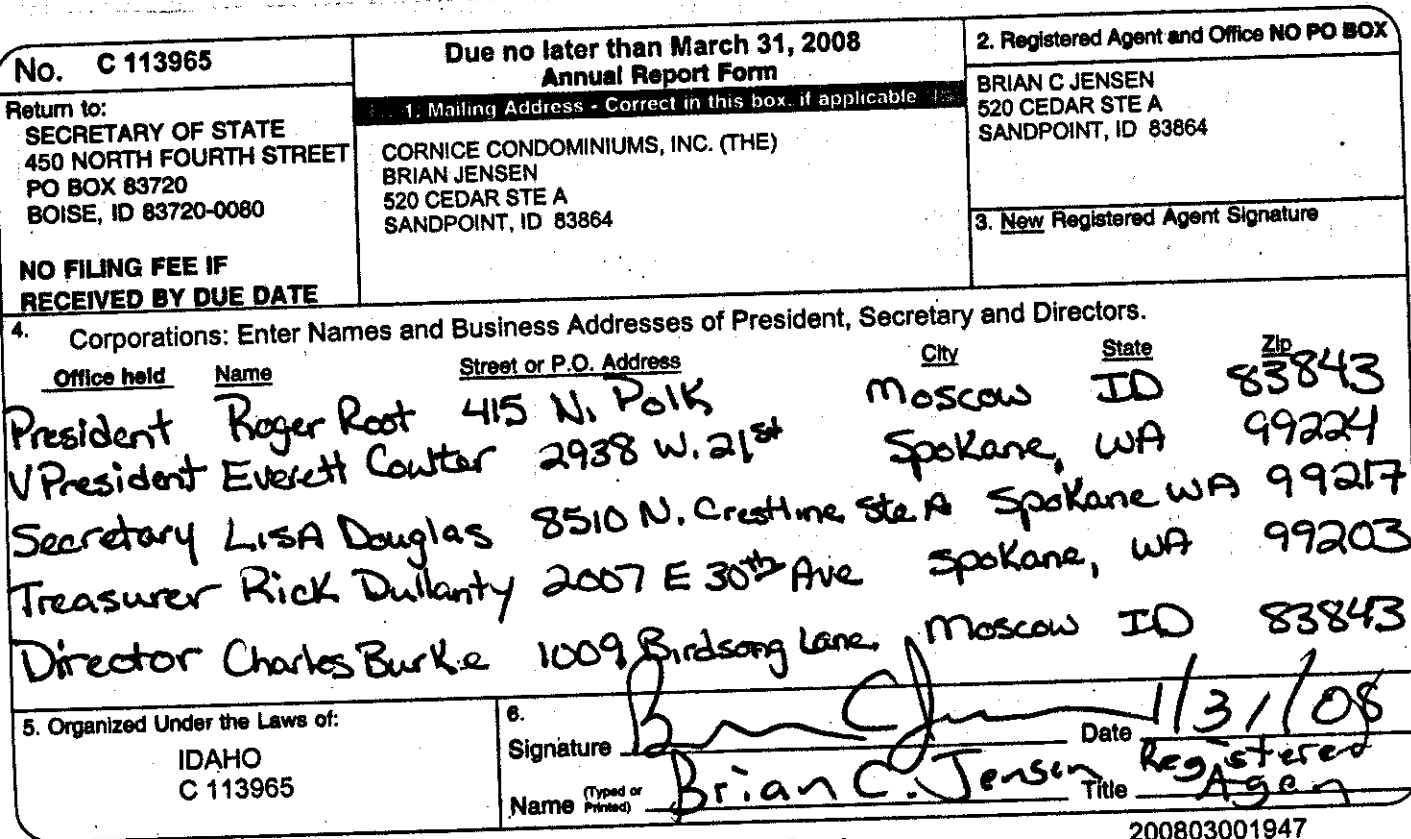 No. C 113965
Return to:
SECRETARY OF STATE
450 NORTH FOURTH STREET
PO BOX 83720
BOISE, ID 83720-0080
NO FILING FEE IF
RECEIVED BY DUE DATE
Due no later than March 31, 2008
Annual Report Form
1. Mailing Address - Correct in this box, if applicable
CORNICE CONDOMINIUMS, INC. (THE)
BRIAN JENSEN
520 CEDAR STE A
SANDPOINT, ID 83864
2. Registered Agent and Office NO PO BOX
BRIAN C JENSEN
520 CEDAR STE A
SANDPOINT, ID 83864
3. New Registered Agent Signature
4. Corporations: Enter Names and Business Addresses of President, Secretary and Directors.
Office held Name Street or P.O. Address City State Zip
President Roger Root 415 N. Polk Moscow ID 83843
V President Everett Coulter 2938 W. 21st Spokane, WA 99224
Secretary LISA Douglas 8510 N. Crestline Ste A Spokane WA 99217
Treasurer Rick Dullanty 2007 E 30th Ave Spokane, WA 99203
Director Charles Burke 1009 Birdsong Lane, Moscow ID 83843
5. Organized Under the Laws of:
IDAHO
C 113965
6.
Signature Date 1/31/08
Name (Typed or Printed) Brian C. Jensen Title Registered Agen
200803001947